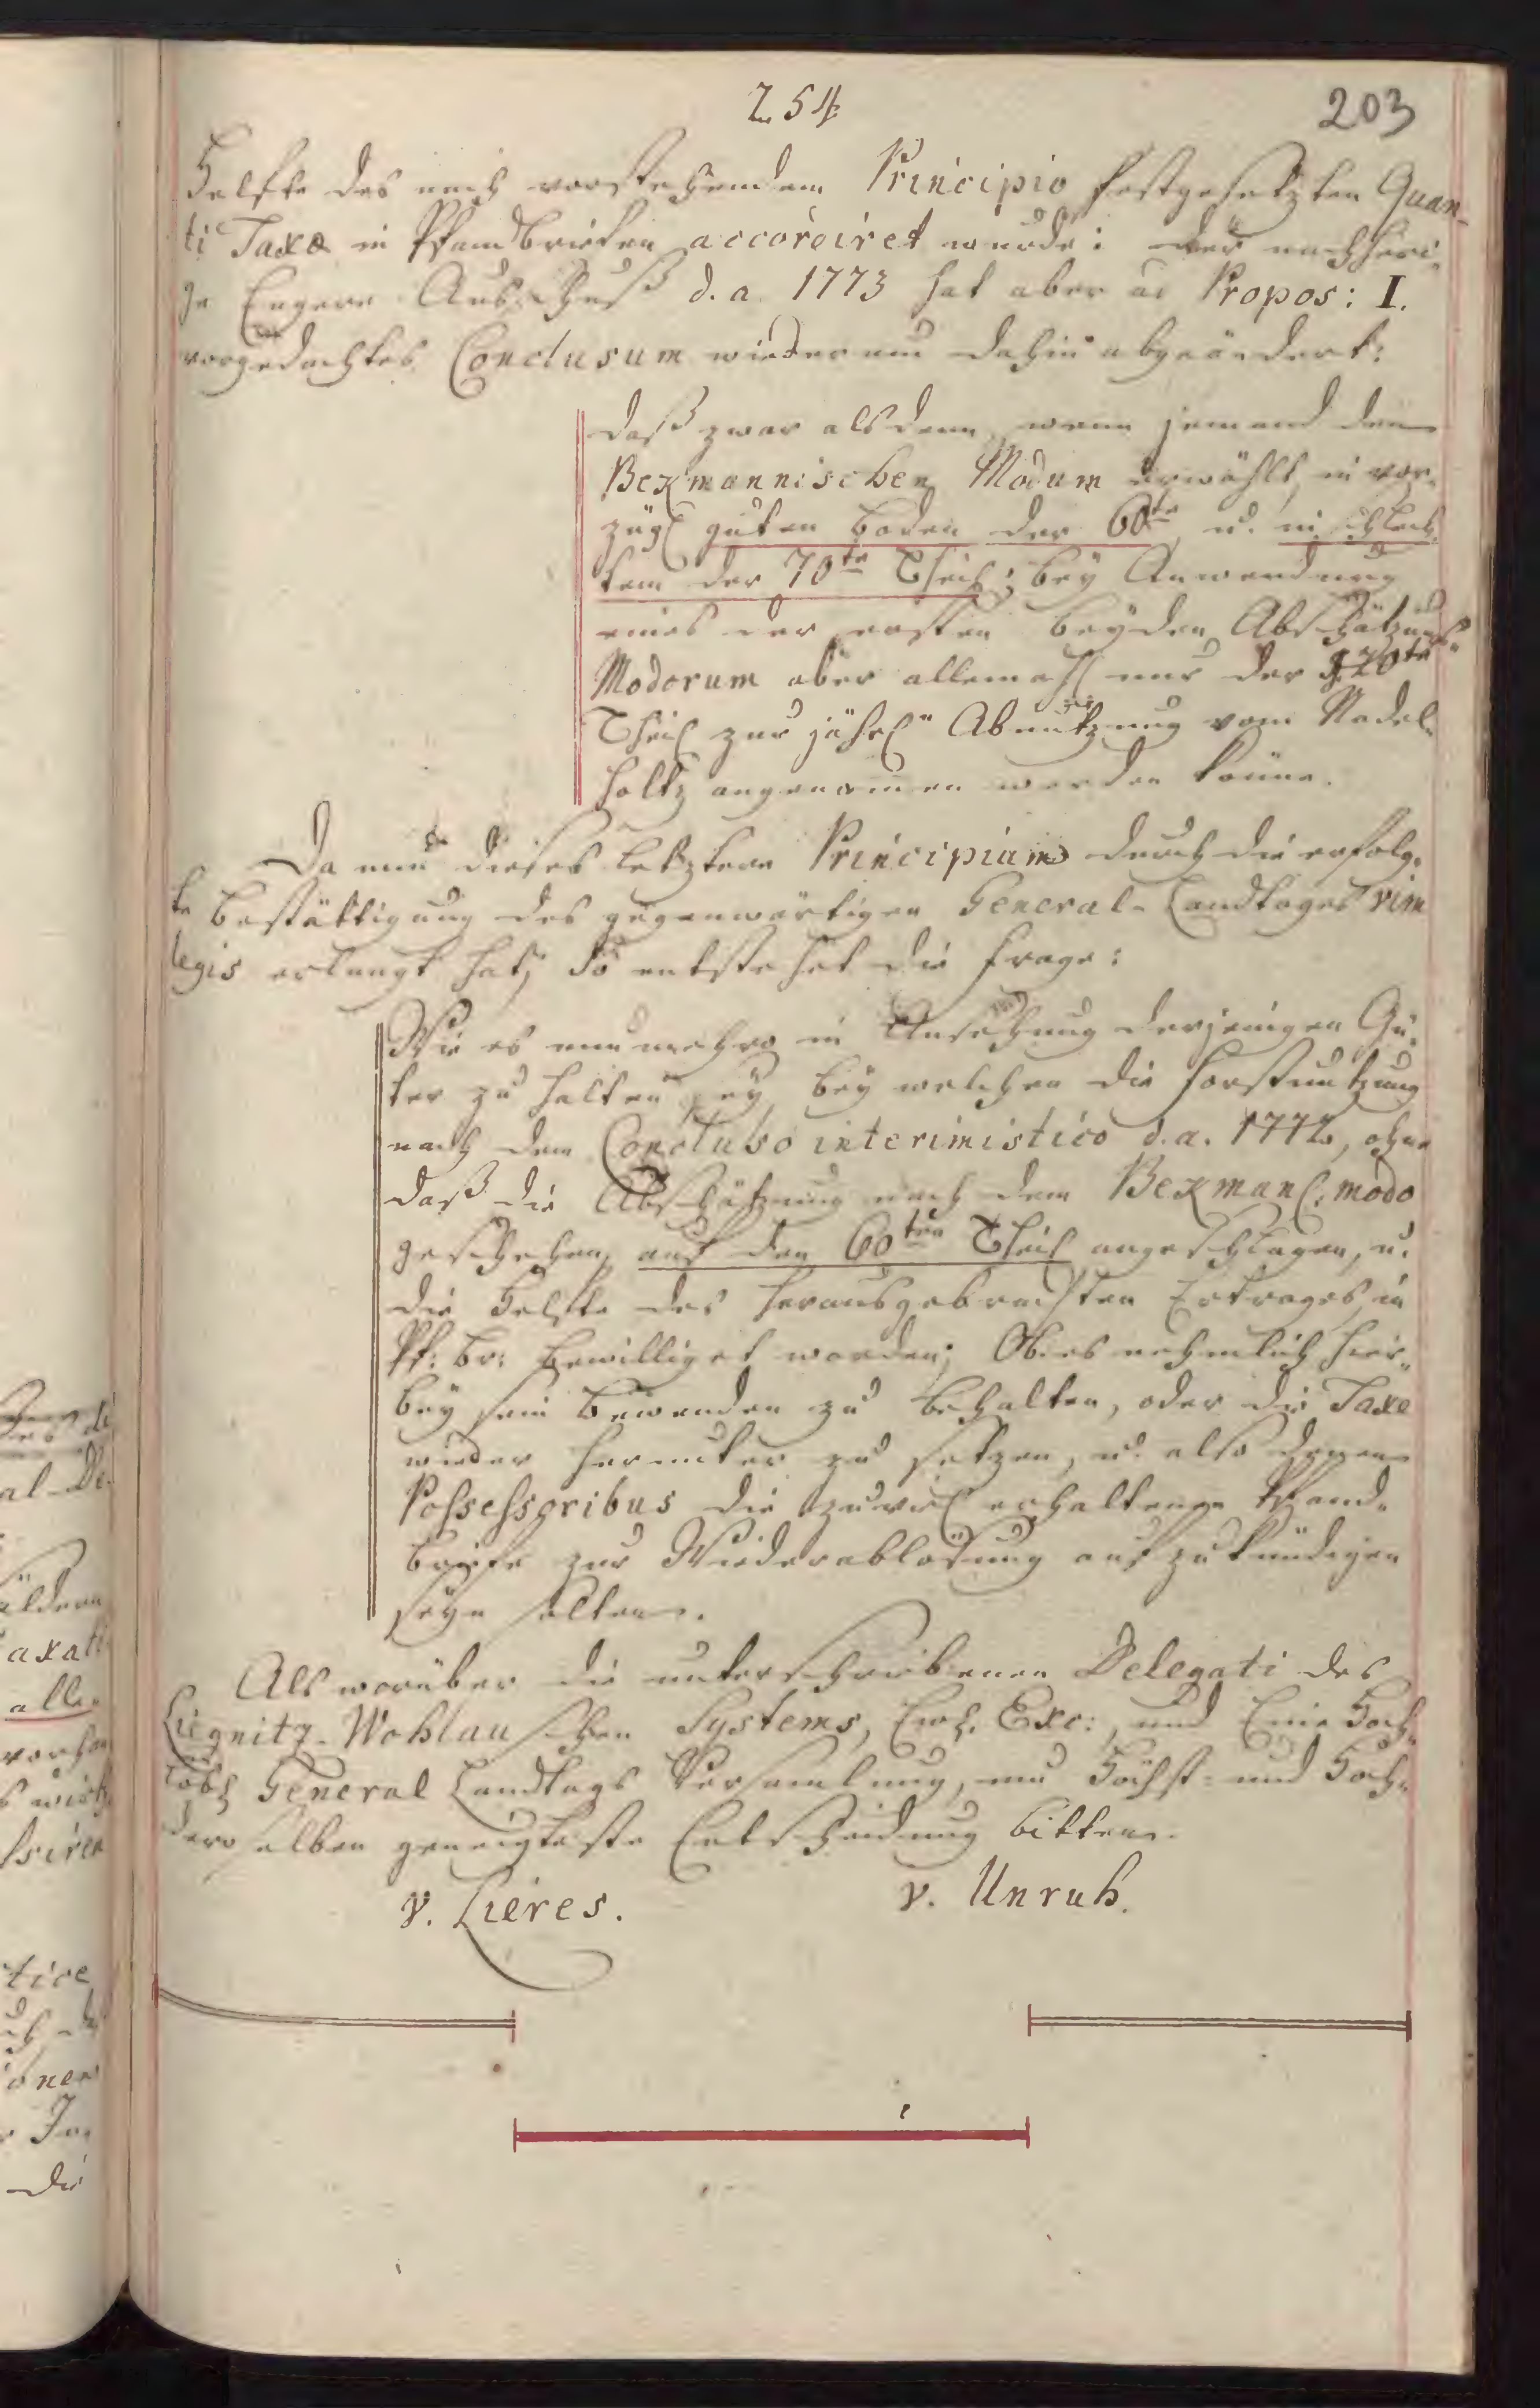 254
203
Helfte des nach vorstehendem Principio festgesetzten Quan-
ti Taxæ in Pfandbriefen accordiret wurde: der nachheri-
ge Engere Ausschuß d. a. 1773 hat aber ad Propos: I.
vorgedachtes Conclusum wiederum dahin abgeändert:
daß zwar alsdenn, wenn jemand den
Bekmannischen Modum erwählt, in vor-
zügl guten Boden der 60te, u. in schlech-
tem der 70te Theil; bey Anwendung
eines der ersten beyden Abschätzungs-
Modorum aber allemahl nur der 70te
Theil zur jährl Abnutzung vom Nadel-
holtz angenommen werden könne.
Da nun dieses letztere Principium durch die erfolg-
te Bestättigung des gegenwärtigen General-Landtages vim
legis erlangt hat; so entstehet die Frage:
Wie es nunmehro in Ansehung derjenigen Gü-
ter zu halten sey, bey welchen die Forstnutzung
nach dem Concluso interimistico d. a. 1772, ohne
daß die Abschätzung nach dem Bekmanl. modo
geschehen, auf den 60ten Theil angeschlagen, u.
die Helfte des herausgebrachten Ertrages in
Pf: br: bewilliget worden; Ob es nehmlich hier-
bey sein Bewenden zu behalten, oder die Taxe
wieder herunter zu setzen, u. also denen
Possessoribus die zuviel erhaltenen Pfand-
briefe zur Wiederablösung aufzukündigen
seyn solten.
Als worüber die unterschriebenen Delegati des
Liegnitz-Wohlauschen Systems, Ewl. Exc:, und Eine Hoch-
löbl General Landtags Versamlung, um Höchst- und Hoch-
deroselben geneigteste Entscheidung bitten.
v. Lieres. v. Unruh.